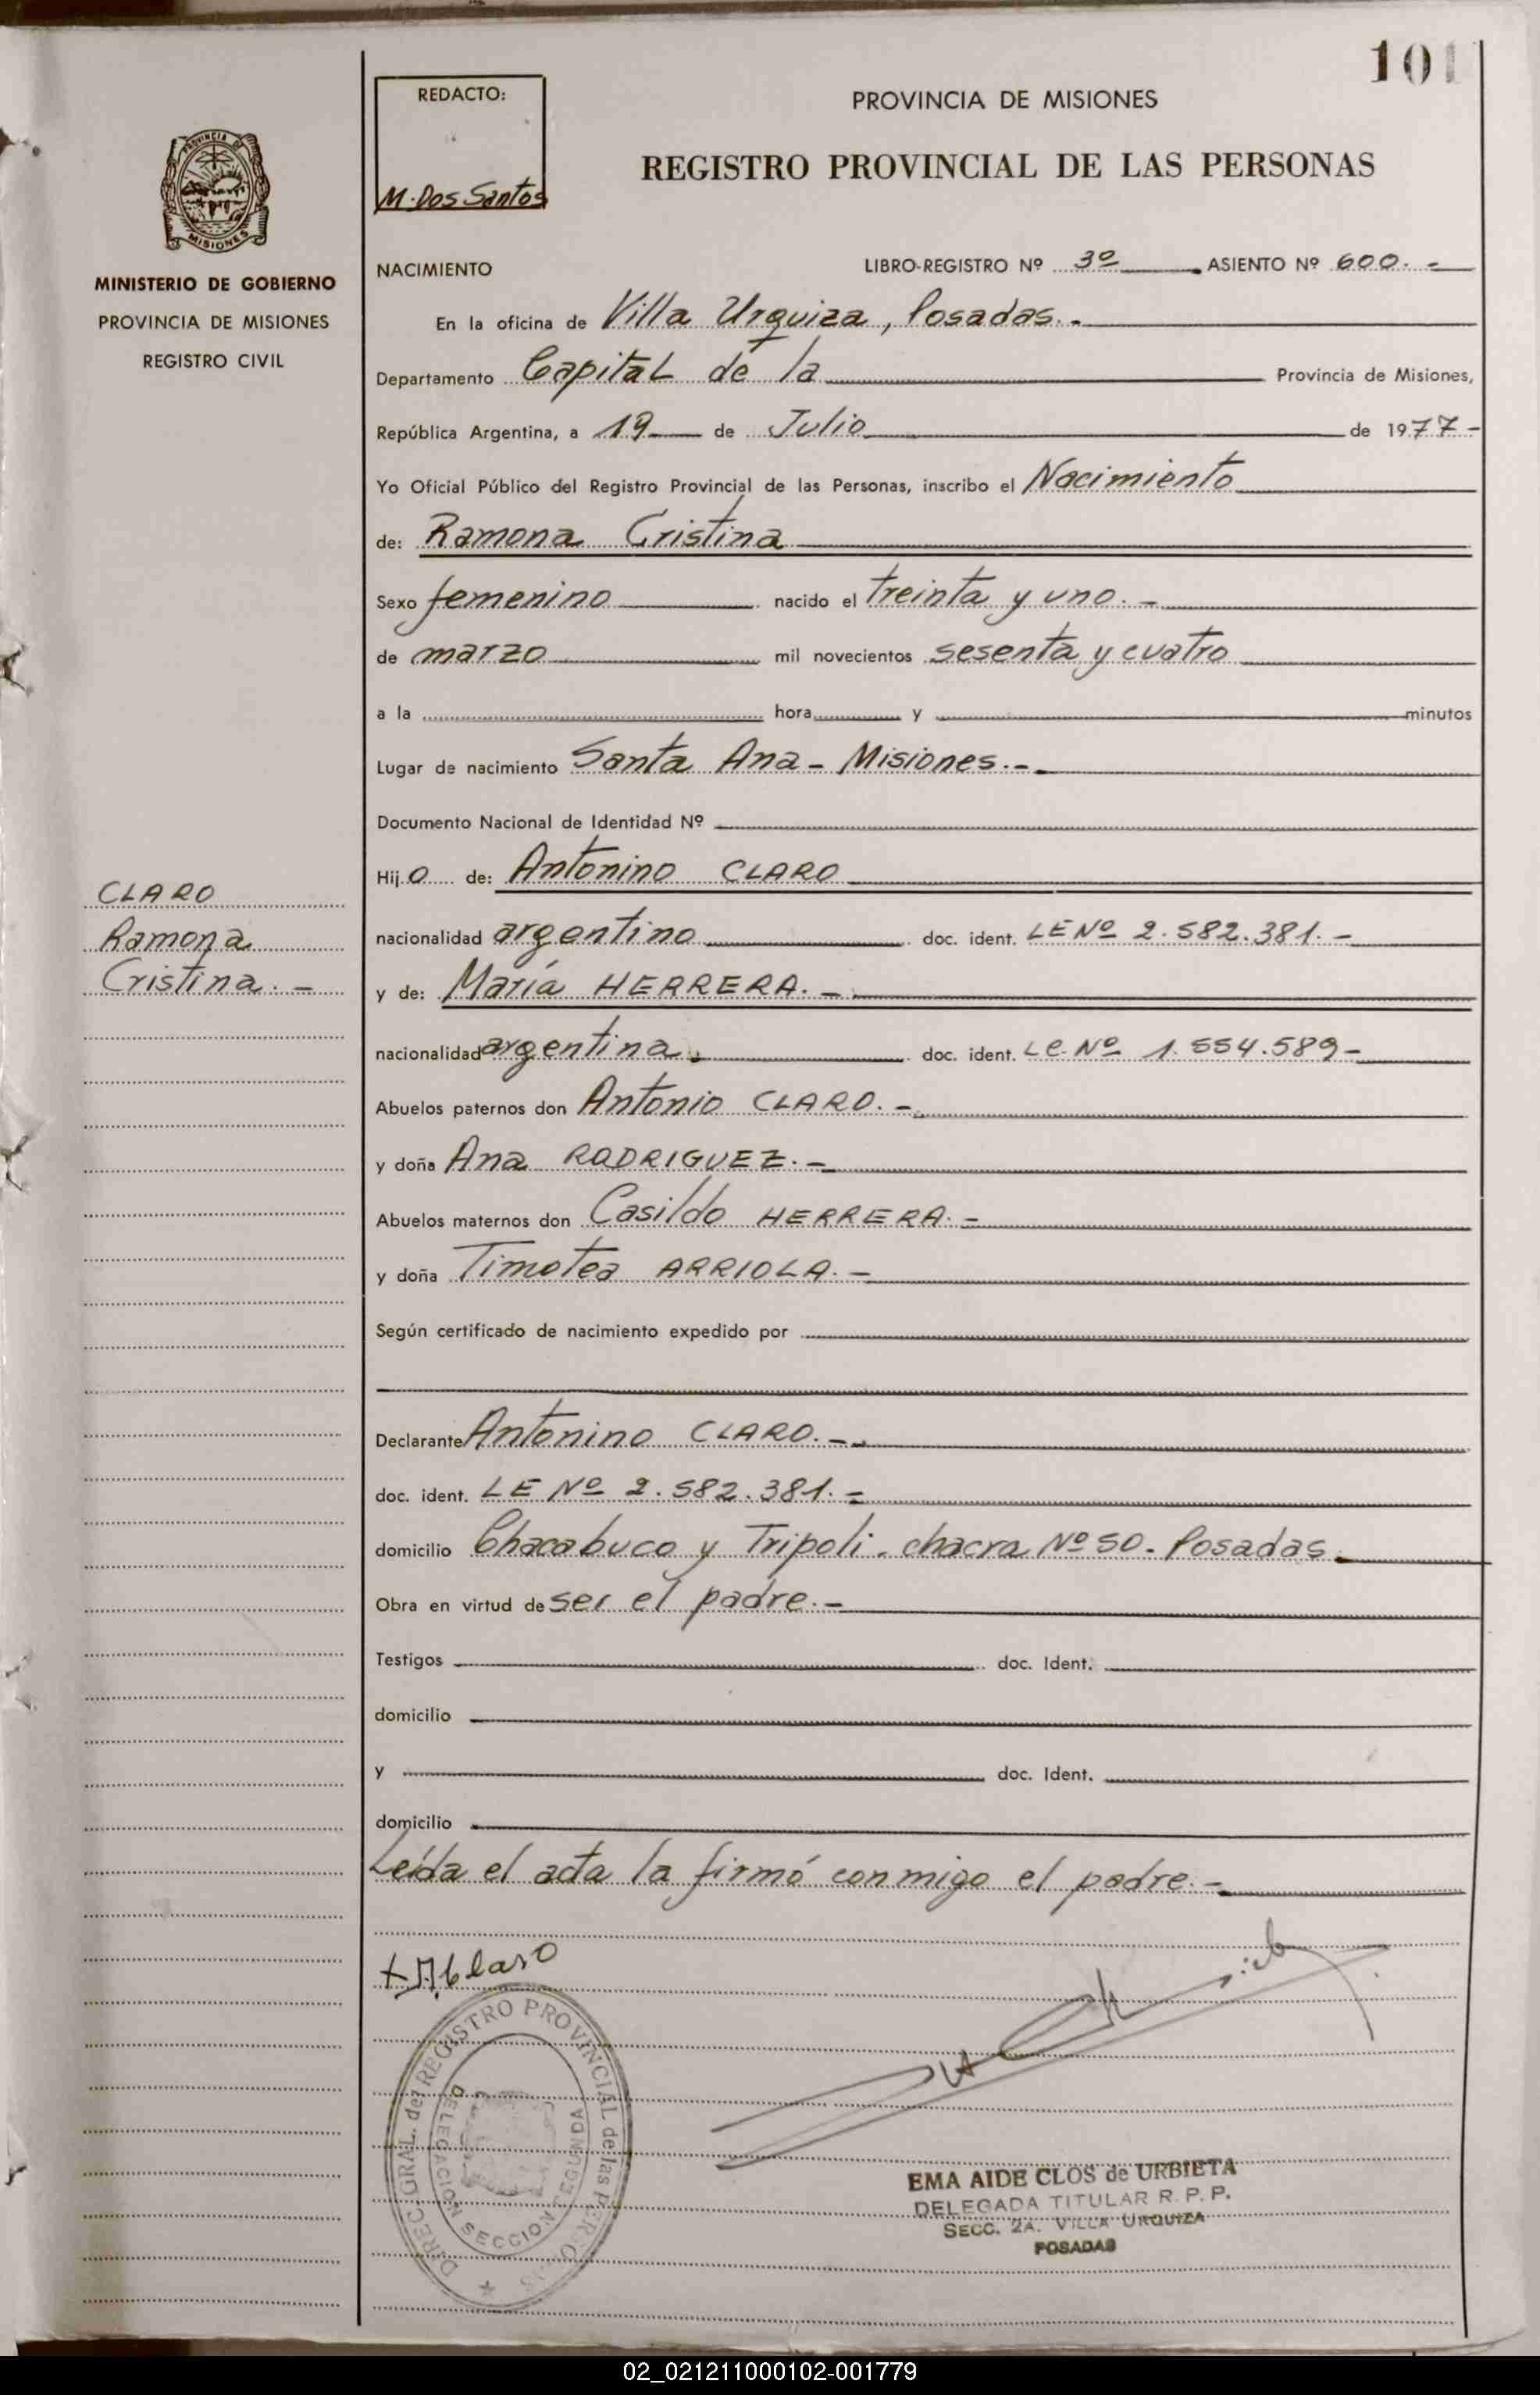 101
REDACTO:
M. Dos Santos
PROVINCIA DE MISIONES
REGISTRO PROVINCIAL DE LAS PERSONAS
PROVINCIA DE
MISIONES
MINISTERIO DE GOBIERNO
PROVINCIA DE MISIONES
REGISTRO CIVIL
NACIMIENTO LIBRO-REGISTRO Nº 3º ASIENTO Nº 600.-
En la oficina de Villa Urquiza, Posadas.-
Departamento Capital de la Provincia de Misiones,
República Argentina, a 19 de Julio de 1977-
Yo Oficial Público del Registro Provincial de las Personas, inscribo el Nacimiento
de: Ramona Cristina
Sexo femenino nacido el treinta y uno.-
de marzo mil novecientos sesenta y cuatro
a la hora y minutos
Lugar de nacimiento Santa Ana - Misiones.-
Documento Nacional de Identidad Nº
Hijo de: Antonino CLARO
CLARO
Ramona
Cristina.-
nacionalidad argentino doc. ident. LE Nº 2.582.381.-
y de: María HERRERA.-
nacionalidad argentina. doc. ident. LC Nº 1.554.589-
Abuelos paternos don Antonio CLARO.-
y doña Ana RODRIGUEZ.-
Abuelos maternos don Casildo HERRERA.-
y doña Timotea ARRIOLA.-
Según certificado de nacimiento expedido por
Declarante Antonino CLARO.-
doc. ident. LE Nº 2.582.381.-
domicilio Chacabuco y Tripoli. chacra Nº 50. Posadas.
Obra en virtud de ser el padre.-
Testigos doc. Ident.
domicilio
y doc. Ident.
domicilio
Leída el acta la firmó conmigo el padre.-
DIREC. GRAL. del REGISTRO PROVINCIAL de las
DELEGACION SECCION SEGUNDA
EMA AIDE CLOS de URBIETA
DELEGADA TITULAR R. P. P.
SECC. 2A. VILLA URQUIZA
POSADAS
02_021211000102-001779